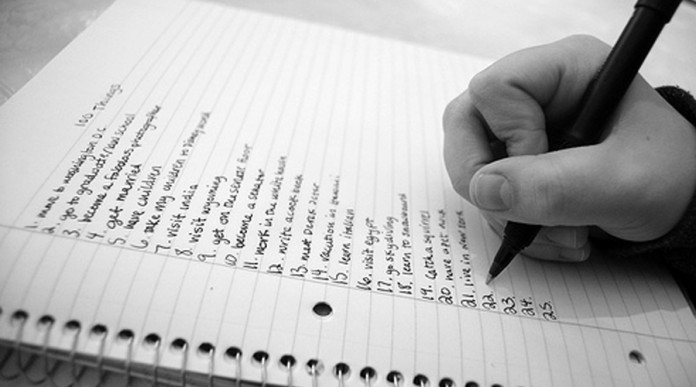 100 Things
1. move to washington D.C
2. go to graduate/law school
3. become a fabulous photographer
4. get married
5. have children
6. take my children to disney world
7. visit India
8. visit wyoming
9. get on the senate floor
10. become a senator
11. work in the white house
12. write a cook book
13. meet Derek Jeter
14. vacation in
15. learn italian
16. visit egypt
17. go skydiving
18. learn to snowboard
19. catch a squirrel
20. have a pet duck
21. live in new york
22.
23.
24.
25.